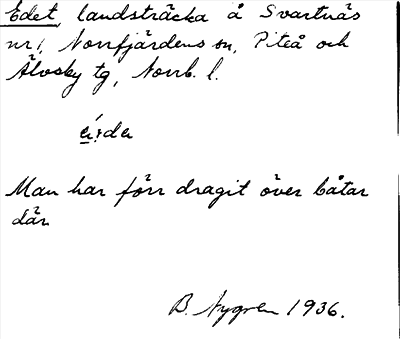 Edet, landsträcka å Svartnäs
nr 1, Norrfjärdens sn, Piteå och
Älvsby tg, Norrb. l.
Man har förr dragit över båtar
där
B. Nygren 1936.